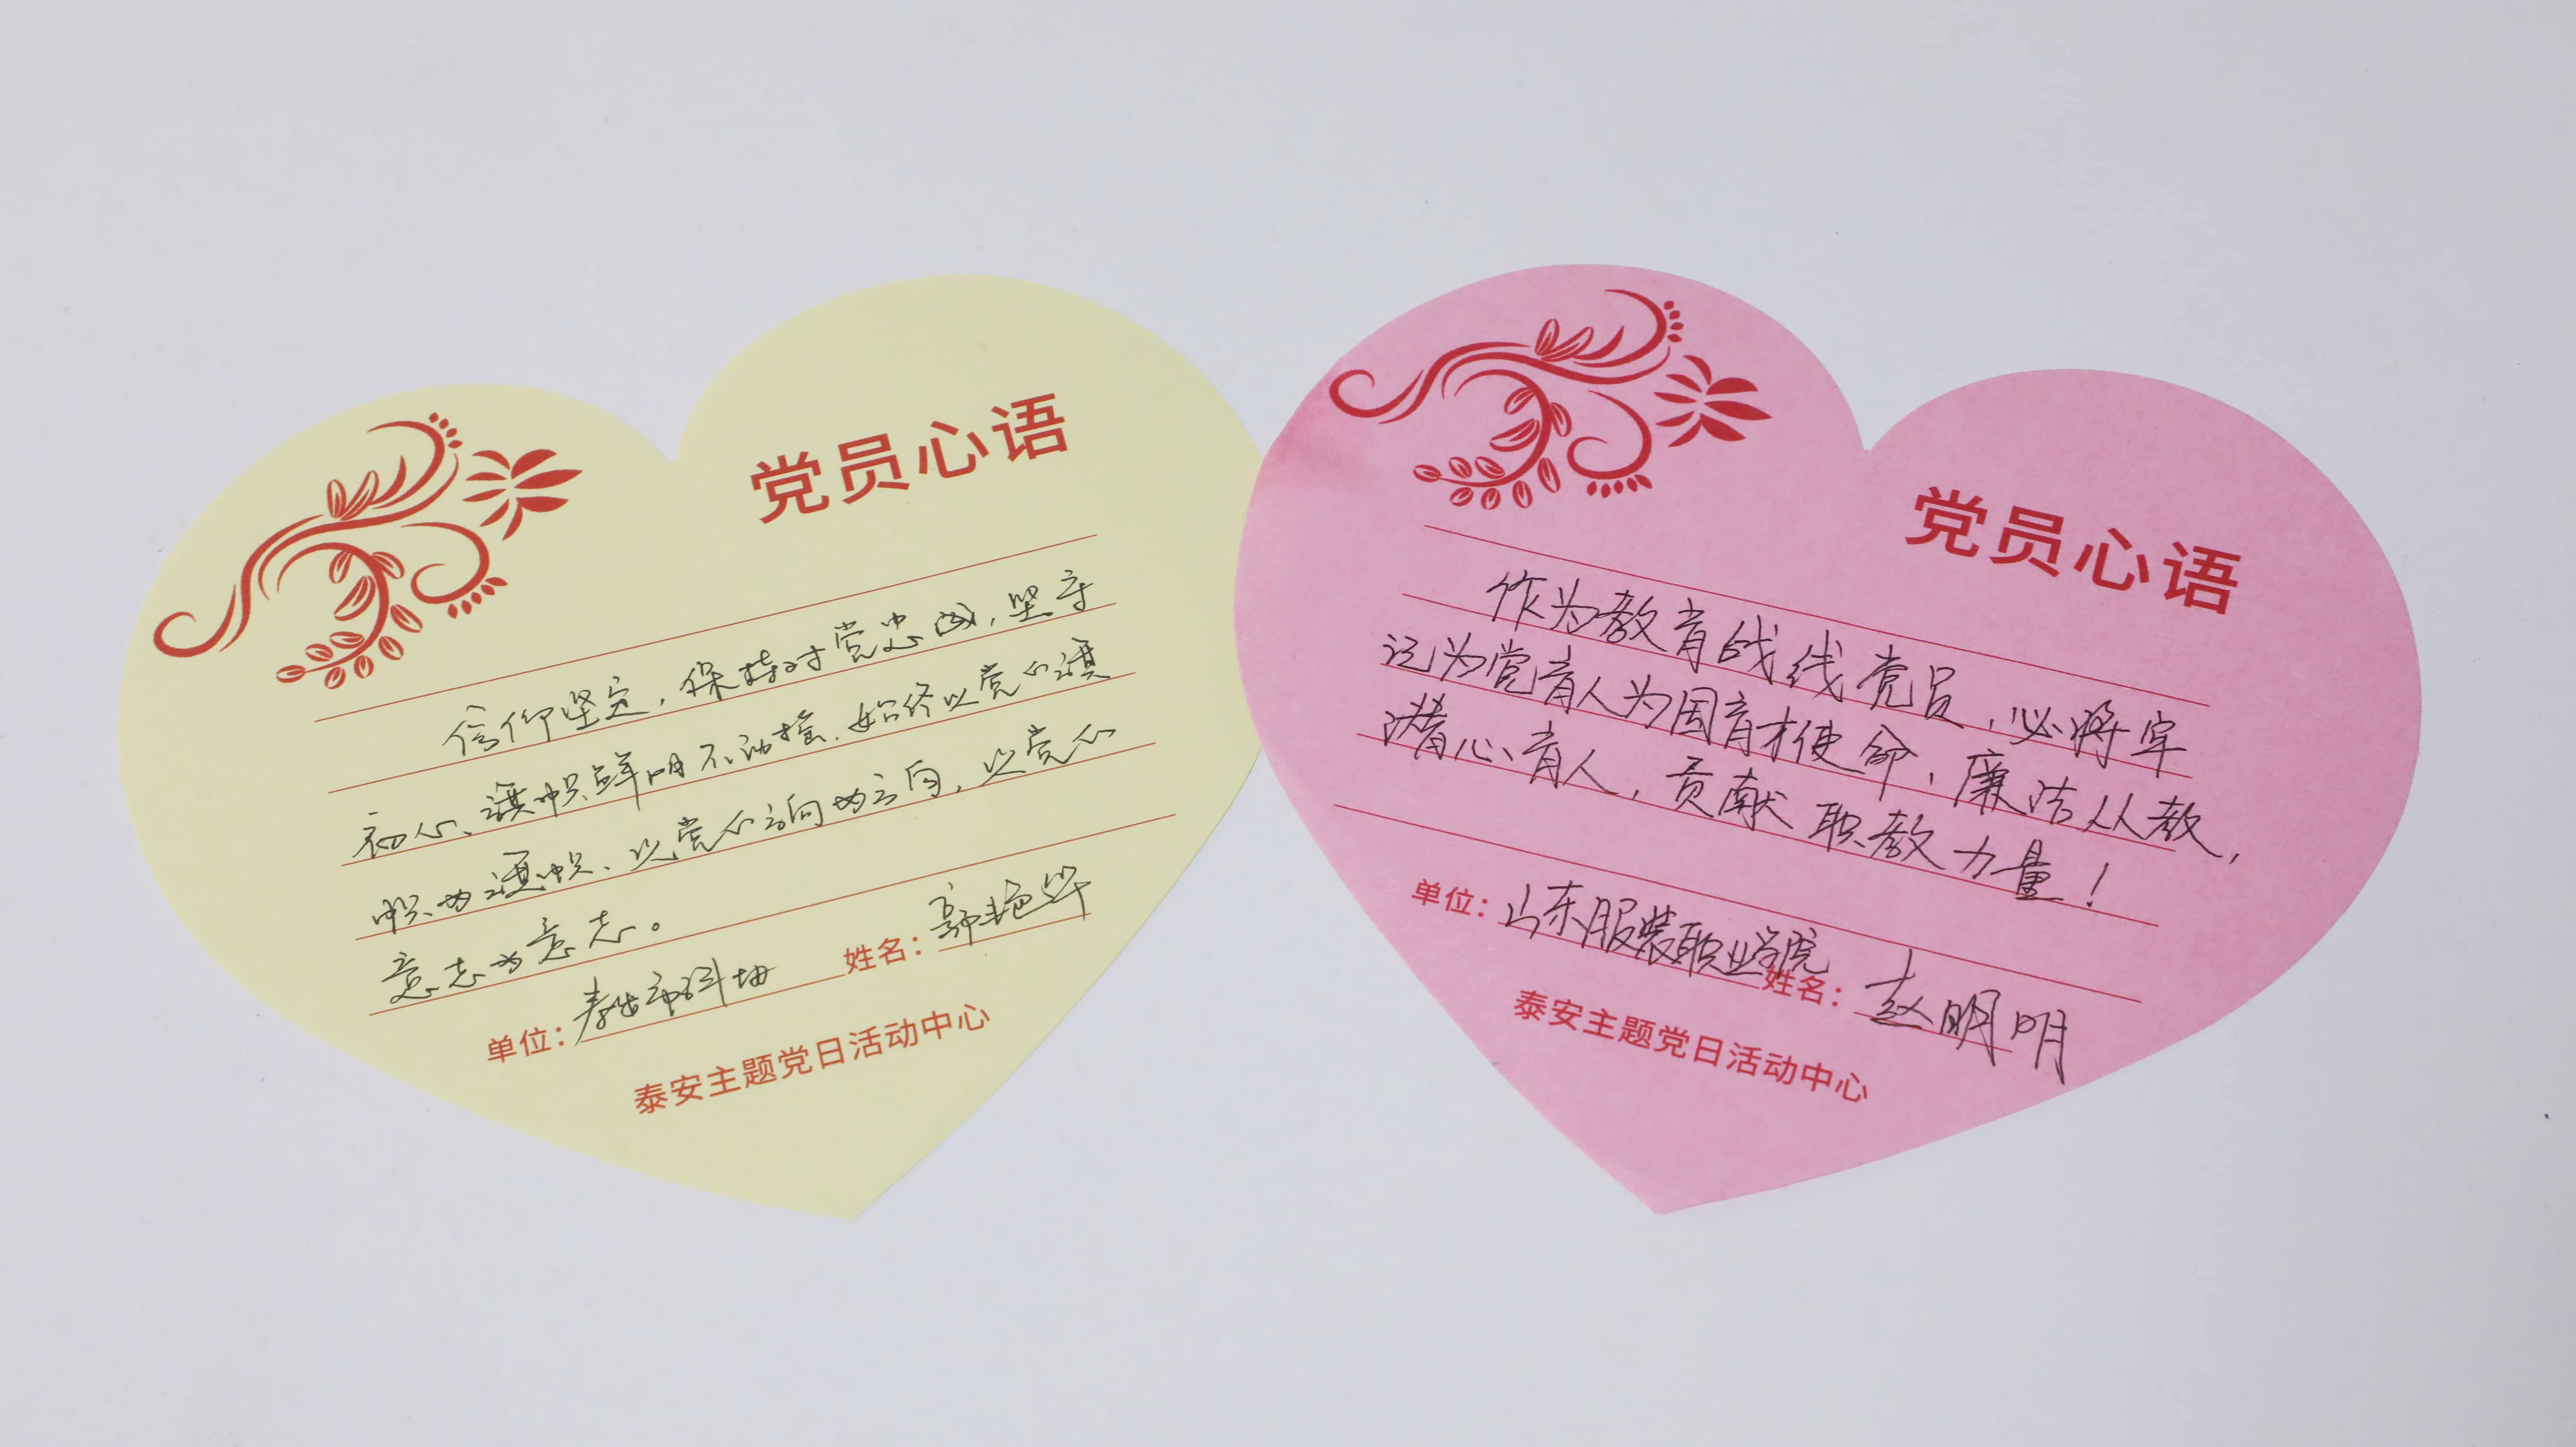 党员心语
信仰坚定，保持对党忠诚，坚守
初心、旗帜鲜明不动摇，始终以党的旗
帜为旗帜、以党的方向为方向，以党的
意志为意志。
单位：泰安市科协 姓名：郭艳华
泰安主题党日活动中心
党员心语
作为教育战线党员，必将牢
记为党育人为国育才使命，廉洁从教，
潜心育人，贡献职教力量！
单位：山东服装职业学院 姓名：赵明明
泰安主题党日活动中心